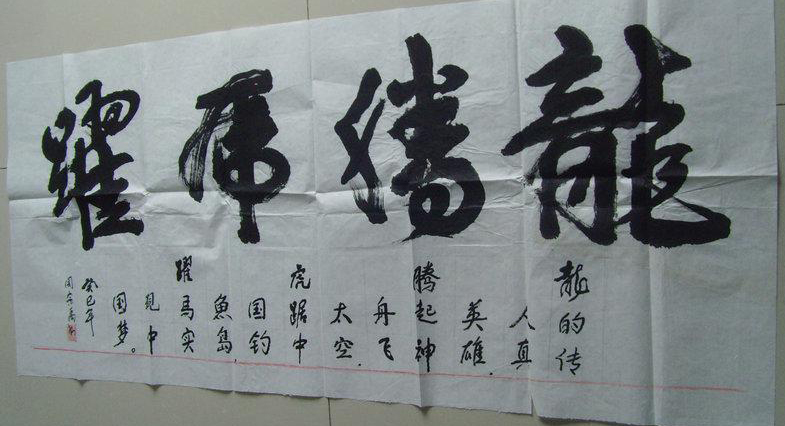 龍騰虎躍
龙的传
人真
英雄,
腾起神
舟飞
太空,
虎踞中
国钓
魚岛,
躍马实
现中
国梦。
癸巳年